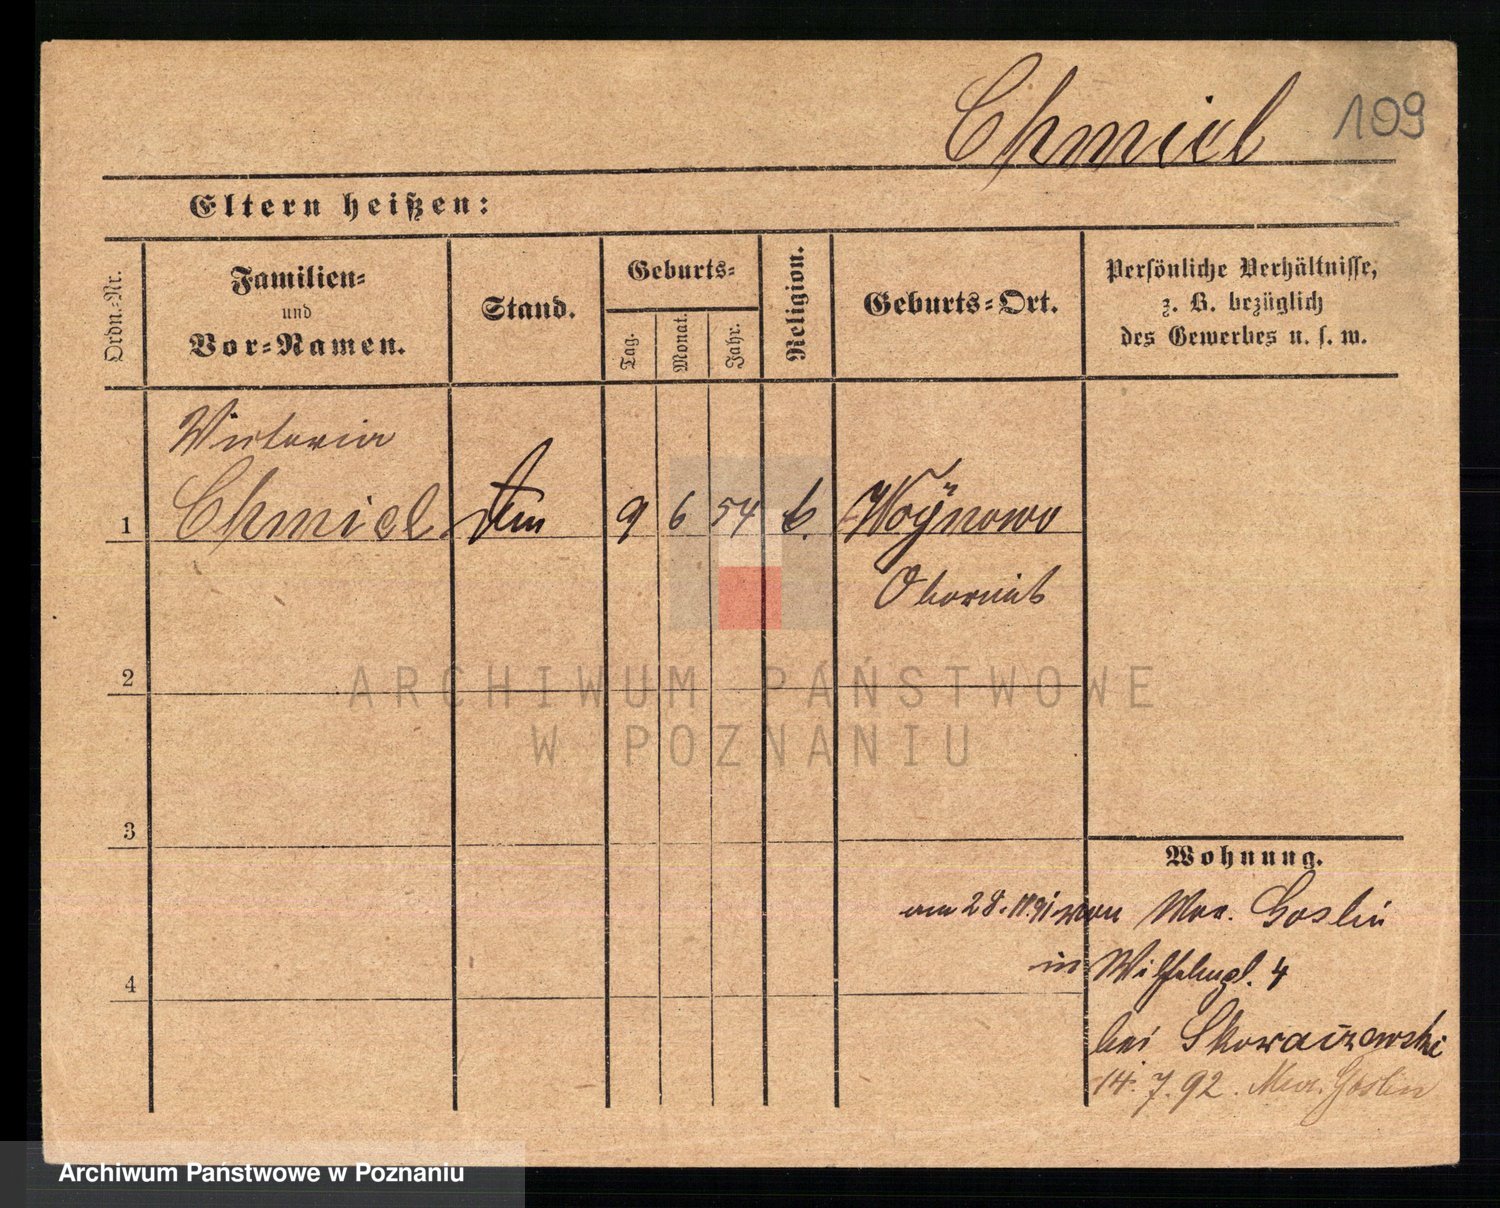 Chmiel
109
Eltern heißen:
Ordn.-Nr.
Familien-
und
Vor-Namen.
Stand.
Geburts-
Tag.
Monat.
Jahr.
Religion.
Geburts-Ort.
Persönliche Verhältnisse,
z. B. bezüglich
des Gewerbes u. s. w.
Victoria
1 Chmiel 9 6 54 Woÿnowo
Obornik
2
3
4
Wohnung.
am 28. 11. 91 von Mur. Goslin
in Wilhelmpl. 4
bei Skoraczewski
14. 7. 92. Mur. Goslin
ARCHIWUM PAŃSTWOWE
W POZNANIU
Archiwum Państwowe w Poznaniu